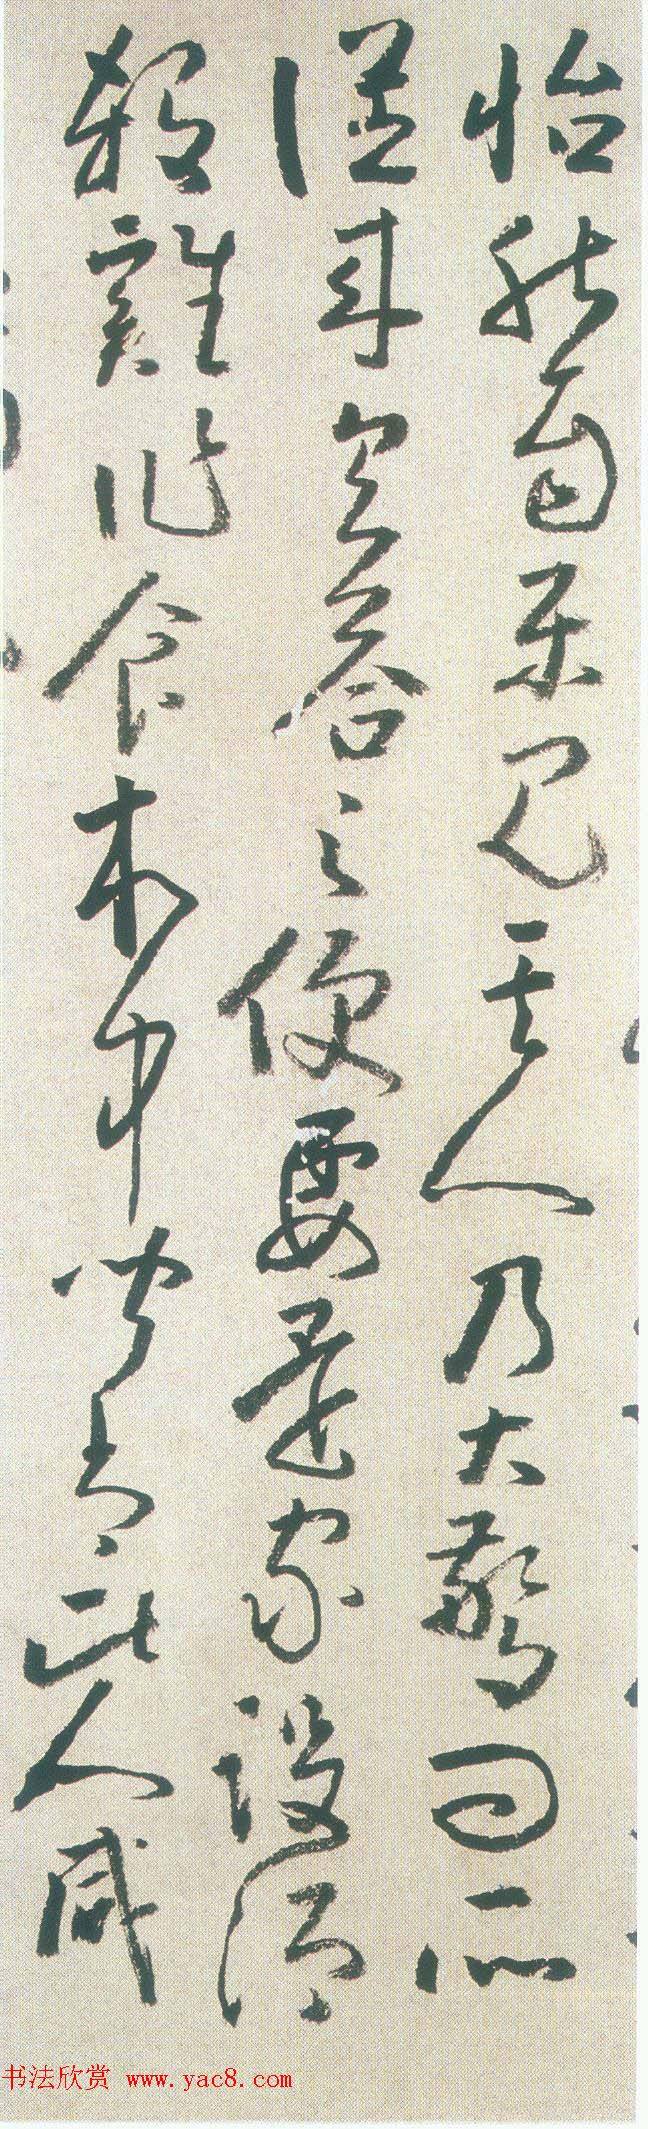 怡然自樂見其人乃大驚問所
從来具答之便要還家設酒
殺雞作食村中聞有此人咸
书法欣赏 www.yac8.com